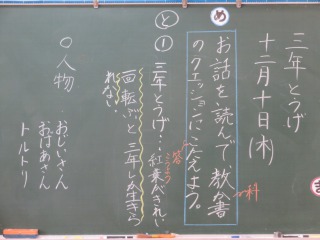 三年とうげ
十二月十日(木)
め
お話を読んで、教科書
のクエッションにこたえよう。
答
と
① 三年とうげ…紅葉がきれい
こうよう
一回転ぶと三年しか生きら
れない。
○人物
おじいさん
おばあさん
トルトリ
ま